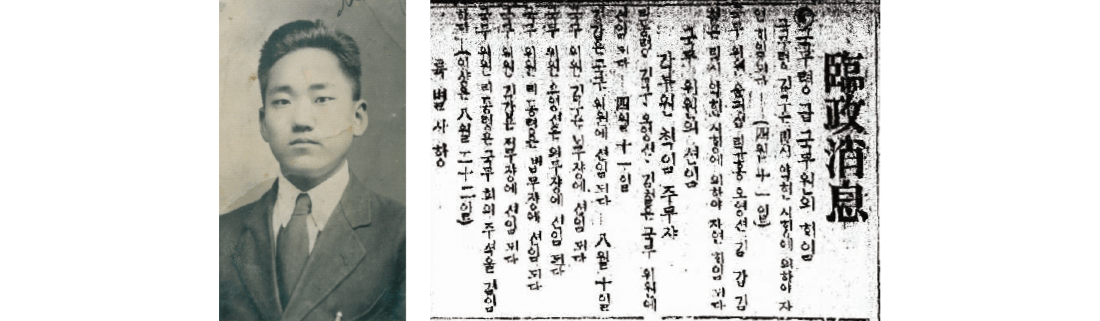 臨政消息
국무령급국무원의 해임
국무령 김구는 림시약헌시행에 의하야 자
연해임되다―(四월十一일)
국무원 윤긔섭 리규홍 오영선 김 갑 김
철은 림시약헌시행에 의하야 자연해임되다
국무위원의 선임
각부원 책임 주무자
리동녕 김구 오영선 김철은 국무위원에
선임되다―四월十一일
김갑은 국무위원에 선임되다―八월十일
국무위원 김구는 내무장에 선임되다
국무위원 오영선은 외무장에 선임되다
국무위원 리동녕은 법무장에 선임되다
국무위원 김갑은 재무장에 선임되다
국무위원 리동녕은 국무회의 주석을 겸임
(이상은 八월二十二일)
륙범사항